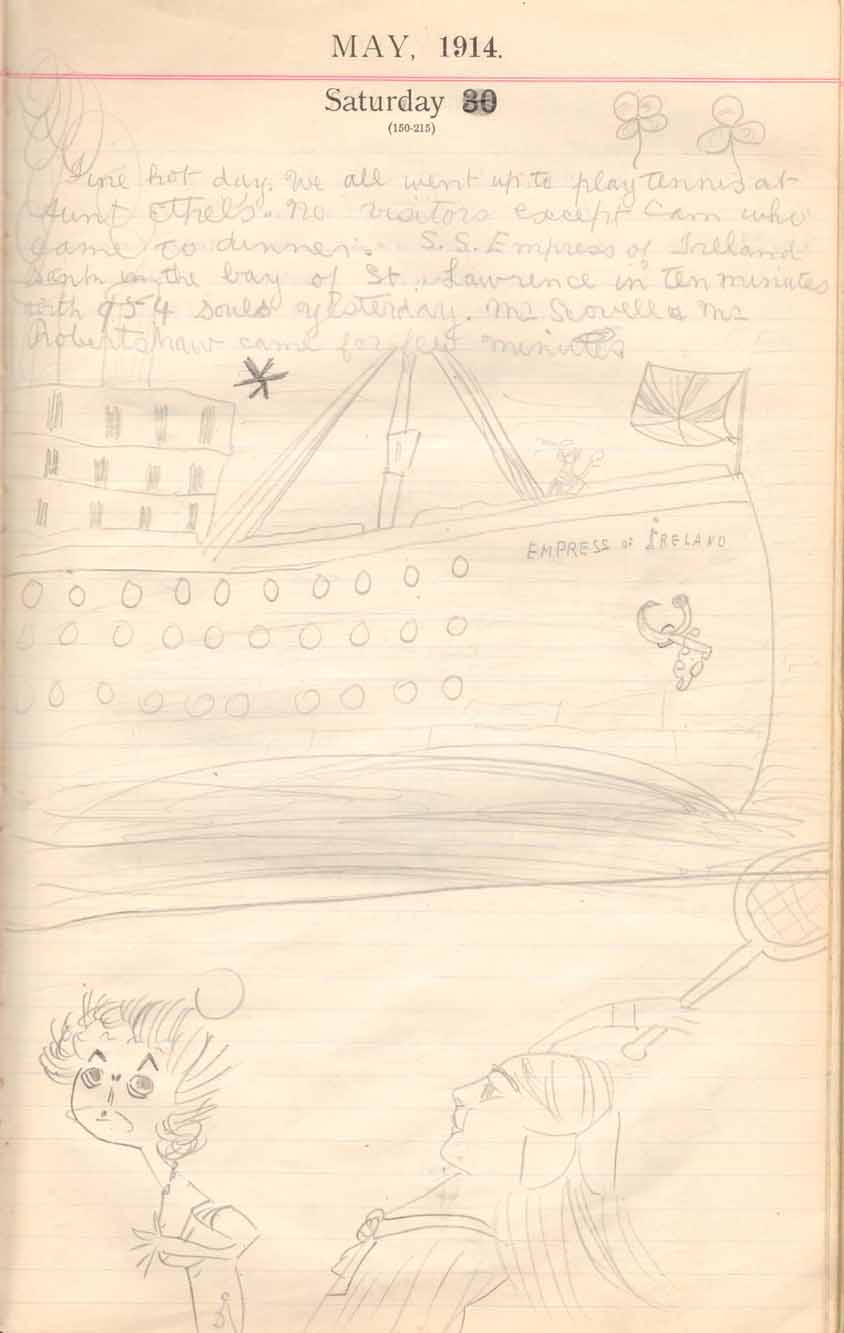 MAY, 1914.
Saturday 30
(150-215)
Fine hot day. We all went up to play tennis at
Aunt Ethel's. No visitors except Cam who
came to dinner. S.S. Empress of Ireland
sank in the bay of St. Lawrence in ten minutes
with 954 souls yesterday. Mr Scovell & Mr
Robertshaw came for few minutes
EMPRESS OF IRELAND